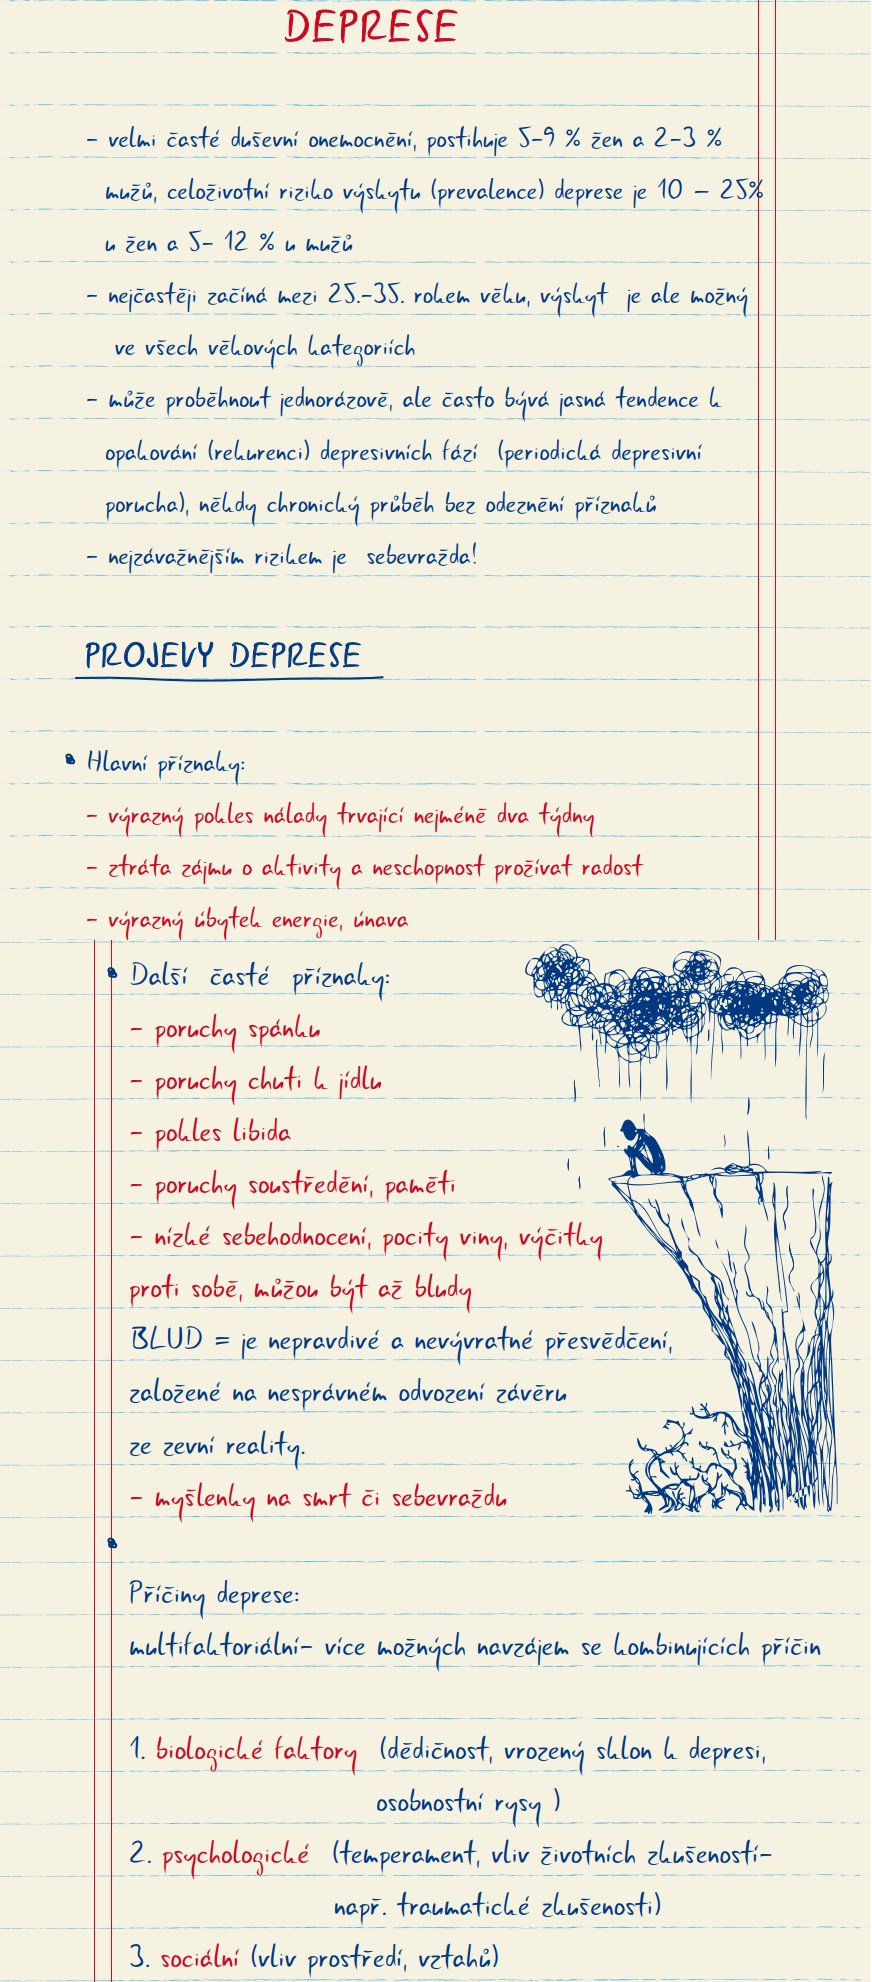 DEPRESE
- velmi časté duševní onemocnění, postihuje 5-9 % žen a 2-3 %
mužů, celoživotní riziko výskytu (prevalence) deprese je 10 - 25%
u žen a 5- 12 % u mužů
- nejčastěji začíná mezi 25.-35. rokem věku, výskyt je ale možný
ve všech věkových kategoriích
- může proběhnout jednorázově, ale často bývá jasná tendence k
opakování (rekurenci) depresivních fází (periodická depresivní
porucha), někdy chronický průběh bez odeznění příznaků
- nejzávažnějším rizikem je sebevražda!
PROJEVY DEPRESE
• Hlavní příznaky:
- výrazný pokles nálady trvající nejméně dva týdny
- ztráta zájmu o aktivity a neschopnost prožívat radost
- výrazný úbytek energie, únava
• Další časté příznaky:
- poruchy spánku
- poruchy chuti k jídlu
- pokles libida
- poruchy soustředění, paměti
- nízké sebehodnocení, pocity viny, výčitky
proti sobě, můžou být až bludy
BLUD = je nepravdivé a nevývratné přesvědčení,
založené na nesprávném odvození závěru
ze zevní reality.
- myšlenky na smrt či sebevraždu
•
Příčiny deprese:
multifaktoriální- více možných navzájem se kombinujících příčin
1. biologické faktory (dědičnost, vrozený sklon k depresi,
osobnostní rysy )
2. psychologické (temperament, vliv životních zkušeností-
např. traumatické zkušenosti)
3. sociální (vliv prostředí, vztahů)